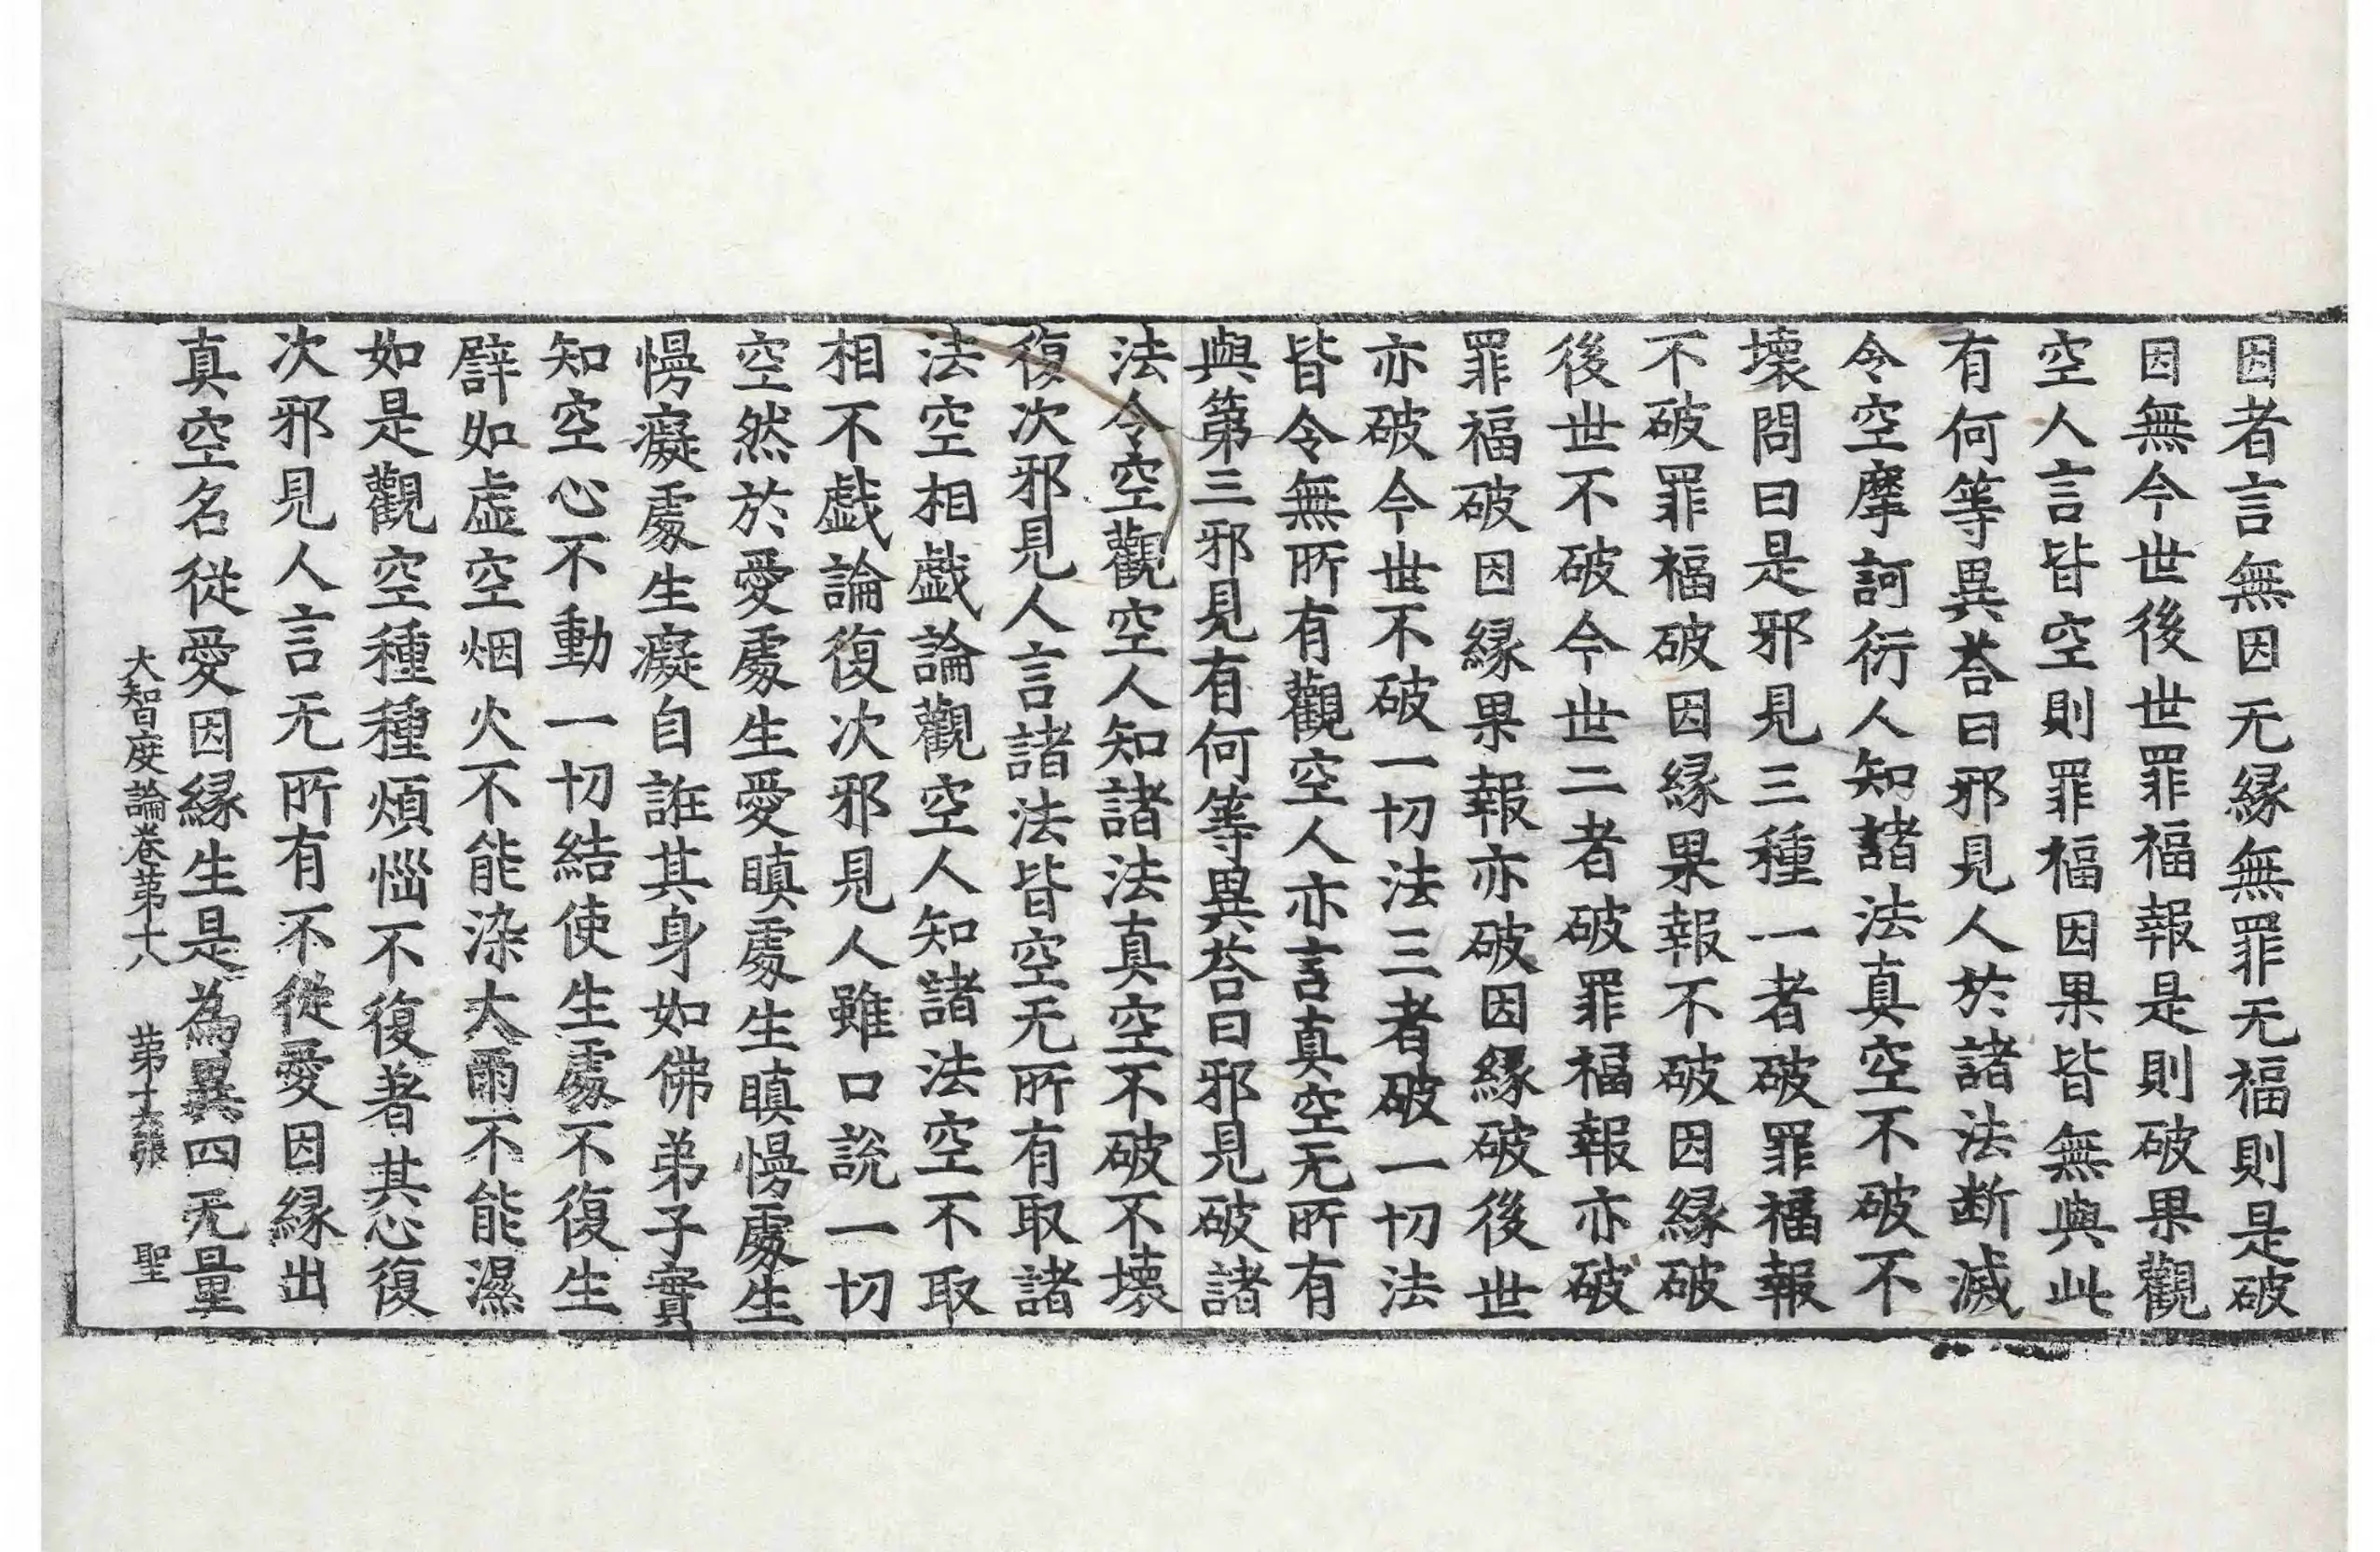 因者言無因无縁無罪无福則是破
因無今世後世罪福報是則破果觀
空人言皆空則罪福因果皆無與此
有何等異荅曰邪見人於諸法断滅
令空摩訶衍人知諸法真空不破不
壊問曰是邪見三種一者破罪福報
不破罪福破因縁果報不破因縁破
後世不破今世二者破罪福報亦破
罪福破因縁果報亦破因縁破後世
亦破今世不破一切法三者破一切法
皆令無所有觀空人亦言真空无所有
與第三邪見有何等異荅曰邪見破諸
法令空觀空人知諸法真空不破不壊
復次邪見人言諸法皆空无所有取諸
法空相戯論觀空人知諸法空不取
相不戯論復次邪見人雖口說一切
空然於愛處生愛瞋處生瞋慢處生
慢癡處生癡自誑其身如佛弟子實
知空心不動一切結使生處不復生
譬如虚空烟火不能染大雨不能濕
如是觀空種種煩惱不復著其心復
次邪見人言无所有不從愛因縁出
真空名從愛因縁生是為異四无量
大智度論卷第十八 第十六張 聖